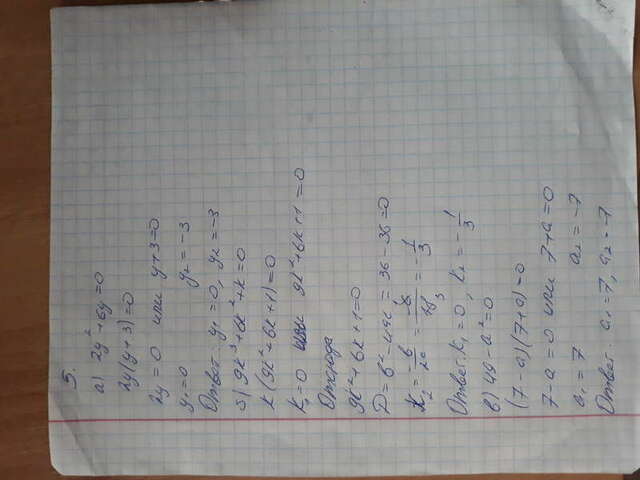 5.
а) 2y²+6y=0
2y(y+3)=0
2y=0 или y+3=0
y₁=0 y₂=-3
Ответ: y₁=0, y₂=-3
б) 9k³+6k²+k=0
k(9k²+6k+1)=0
k₁=0 или 9k²+6k+1=0
Отсюда
9k²+6k+1=0
D=b²-4ac=36-36=0
k₂=-b/2a=-6/18=-1/3
Ответ: k₁=0, k₂=-1/3
в) 49-a²=0
(7-a)(7+a)=0
7-a=0 или 7+a=0
a₁=7 a₂=-7
Ответ: a₁=7, a₂=-7